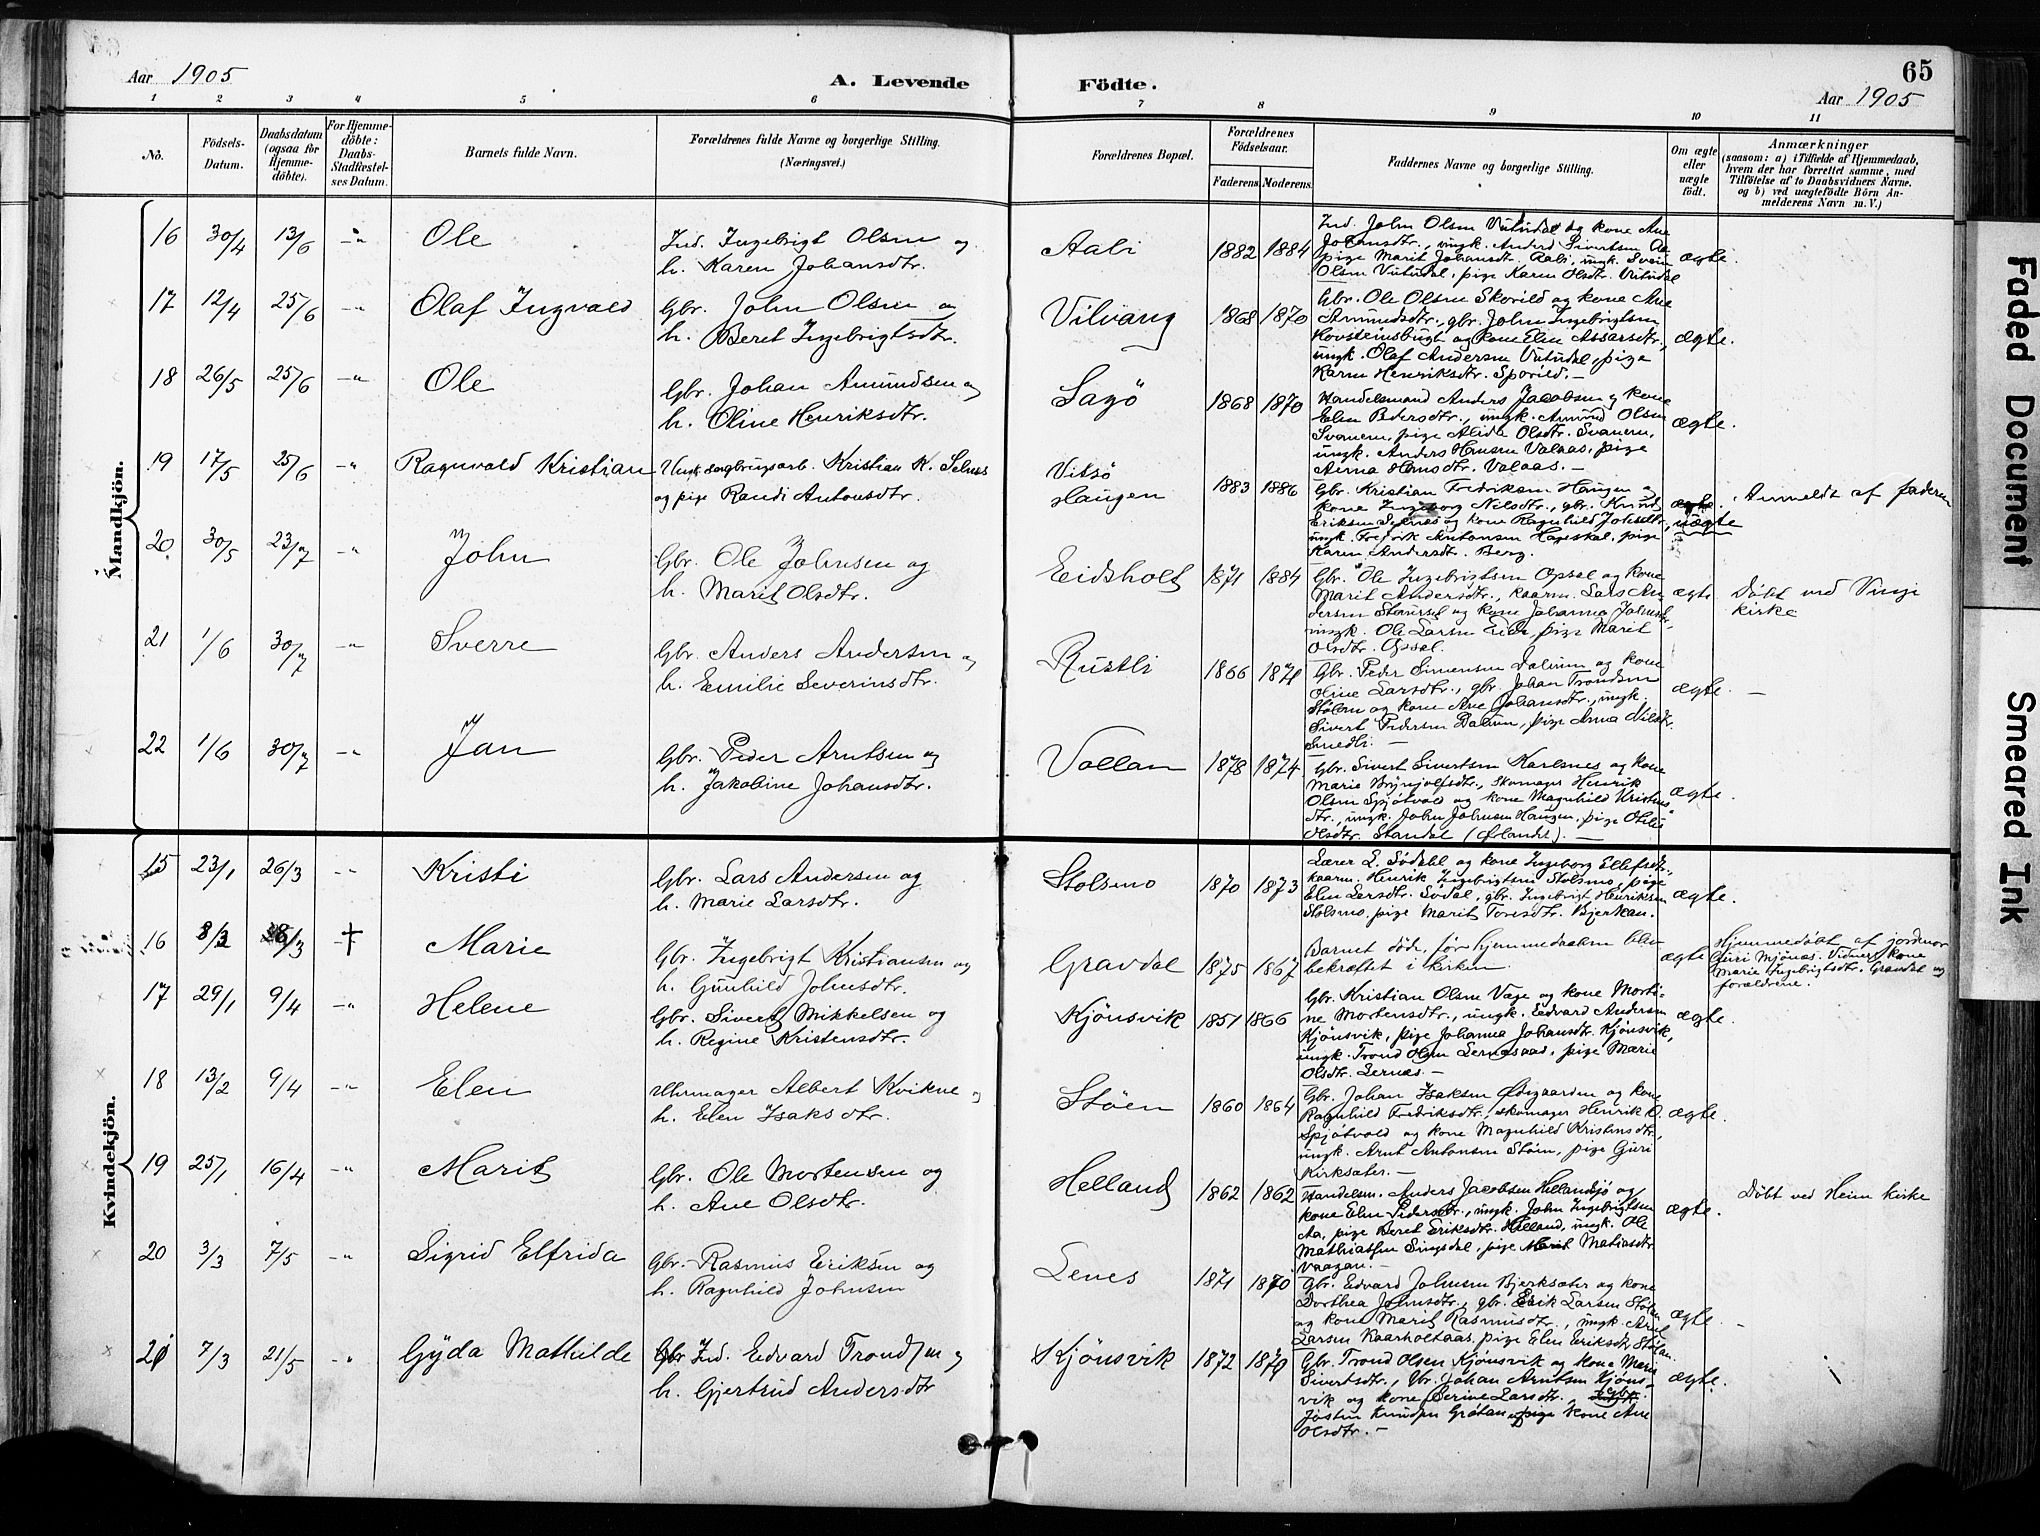 Aar 1905
A. Levende
Födte.
65
Aar 1905
1 2 3 4 5 6 7 8 9 10 11
No.
Födsels-
Datum.
Daabsdatum
(ogsaa for
Hjemme-
döbte).
For Hjemme-
döbte:
Daabs-
Stadfæstel-
ses Datum.
Barnets fulde Navn.
Forældrenes fulde Navne og borgerlige Stilling.
(Næringsvei.)
Forældrenes Bopæl.
Forældrenes
Födselsaar.
Faderens
Moderens
Faddernes Navne og borgerlige Stilling.
Om ægte
eller
uægte
födt.
Anmærkninger
(saasom: a) i Tilfælde af Hjemmedaab,
hvem der har forrettet samme, med
Tilföielse af to Daabsvidners Navne.
og b) ved uægtefödte Börn An-
melderens Navn m. V.)
Mandkjön.
16 30/4 13/6 -"- Ole
Ind. Ingebrigt Olsen og
h. Karen Johansdtr.
Aali 1882 1884
Ind. John Olsen Vutudal og kone Ane
Johansdtr., ungk. Anders Sivertsen Aa,
pige Marit Johansdtr. Aali, ungk. Svein
Olsen Vutudal, pige Karen Olsdtr. Vutudal
ægte.
17 12/4 25/6 -"- Olaf Ingvald
Gbr. John Olsen og
h. Beret Ingebrigtsdtr.
Vilvang 1868 1870
Gbr. Ole Olsen Skorild og kone Ane
Amundsdtr., gbr. John Ingebrigtsen
Hovsteinsbugt og kone Elen Assersdtr.,
ungk. Olaf Andersen Vutudal, pige
Karen Henriksdtr. Sporild. -
ægte.
18 26/5 25/6 -"- Ole
Gbr. Johan Amundsen og
h. Oline Henriksdtr.
Sagö 1868 1870
Handelsmand Anders Jacobsen og kone
Elen Pedersdtr., ungk. Amund Olsen
Svanem, pige Alida Olsdtr. Svanem,
ungk. Anders Hansen Valaas, pige
Anna Hansdtr. Valaas. -
ægte.
19 17/5 25/6 -"- Ragnvald Kristian
Ungk. sagbrugsarb. Kristian K. Selnes
og pige Randi Antonsdtr.
Vitsö
Haugen 1883 1886
Gbr. Kristian Fredriksen Haugen og
kone Ingeborg Nilsdtr., gbr. Knut
Eriksen Selnes og kone Ragnhild Johsdtr.,
ungk. Fredrik Antonsen Hageskal, pige
Karen Andersdtr. Berg.
ægte.
uægte
Anmeldt af faderen
20 30/5 23/7 -"- John
Gbr. Ole Johnsen og
h. Marit Olsdtr.
Eidsholt 1871 1884
Gbr. Ole Ingebrigtsen Opsal og kone
Marit Andersdtr., kaarm. Lars An-
dersen Staurset og kone Johanna Johnsdtr.,
ungk. Ole Larsen Eide, pige Marit
Olsdtr. Opsal.
ægte
Döbt ved Vinje
kirke
21 1/6 30/7 -"- Sverre
Gbr. Anders Andersen og
h. Emilie Severinsdtr.
Rustli 1866 1871
Gbr. Peder Simensen Dalum og kone
Oline Larsdtr., gbr. Johan Trondsen
Stölen og kone Ane Johansdtr., ungk.
Sivert Pedersen Dalum, pige Anna Nilsdtr.
Smedli. -
ægte. -
22 1/6 30/7 -"- Jan
Gbr. Peder Arntsen og
h. Jakobine Johansdtr.
Vollan 1878 1874
Gbr. Sivert Sivertsen Karlsnes og kone
Marie Brynjolfsdtr., skomager Henrik
Olsen Spjötvold og kone Magnhild Kristens-
dtr., ungk. John Johnsen Haugen, pige Otilie
Olsdtr. Standal (Ørlandet). -
ægte.
Kvindekjön.
15 23/1 26/3 -"- Kristi
Gbr. Lars Andersen og
h. Marie Larsdtr.
Stolsmo 1870 1873
Lærer L. Södahl og kone Ingeborg Ellefsdtr.,
kaarm. Henrik Ingebrigtsen Stolsmo, pige
Elen Larsdtr. Södal, gbr. Ingebrigt Henriksen
Stolsmo, pige Marit Toresdtr. Bjerkan.
ægte.
16 8/3 /3 † Marie
Gbr. Ingebrigt Kristiansen og
h. Gunhild Johnsdtr.
Gravdal 1875 1867
Barnet döde før hjemmedaaben blev
bekræftet i kirken.
ægte
Hjemmedöbt af jordmor
Guri Mjönes. Vidner: kone
Marie Ingebrigtsdtr. Gravdal og
forældrene.
17 29/1 9/4 -"- Helene
Gbr. Sivert Mikkelsen og
h. Regine Kristensdtr.
Kjönsvik 1851 1866
Gbr. Kristian Olsen Vage og kone Morti-
ne Mortensdtr., ungk. Edvard Andersen
Kjönsvik, pige Johanna Johansdtr. Kjönsvik,
ungk. Trond Olsen Lernesaad, pige Marie
Olsdtr. Lernes. -
ægte.
18 13/2 9/4 -"- Elen
Uhrmager Albert Kvikne og
h. Elen Isaksdtr.
Stöen 1860 1864
Gbr. Johan Isaksen Ødegaarden og kone
Ragnhild Fredriksdtr., skomager Henrik O.
Spjötvold og kone Magnhild Kristensdtr.,
ungk. Arnt Antonsen Stöen, pige Guri
Kirksæter. -
ægte.
19 25/1 16/4 -"- Marit
Gbr. Ole Mortensen og
h. Ane Olsdtr.
Helland 1862 1862
Handelsm. Anders Jacobsen Hellandsjö og
kone Elen Pedersdtr., ungk. John Ingebrigtsen
Aa, pige Beret Eriksdtr. Helland, ungk. Ole
Mathiassen Singsdal, pige Marit Matiasdtr.
Vaagan. -
ægte.
Döbt ved Heim kirke
20 3/3 7/5 -"- Sigrid Elfrida
Gbr. Rasmus Eriksen og
h. Ragnhild Johnsen
Lenes 1871 1870
Gbr. Edvard Johnsen Bjerksæter og kone
Dorthea Johnsdtr., gbr. Erik Larsen Stölan
og kone Marit Rasmusdtr., ungk. Arnt
Larsen Kaarholtaas, pige Elen Eriksdtr. Stölan.
ægte. -
21 7/3 21/5 -"- Gyda Mathilde
Gbr Ind. Edvard Trondsen og
h. Gjertrud Andersdtr
Kjönsvik 1872 1879
Gbr. Trond Olsen Kjönsvik og kone Marit
Sivertsdtr., Gbr. Johan Arntsen Kjöns-
vik og kone Berine Larsdtr., ungk. Gbr.
Jostein Knudsen Grötan og pige kone Ane
Olsdtr. -
ægte.
Faded Document
Smeared Ink